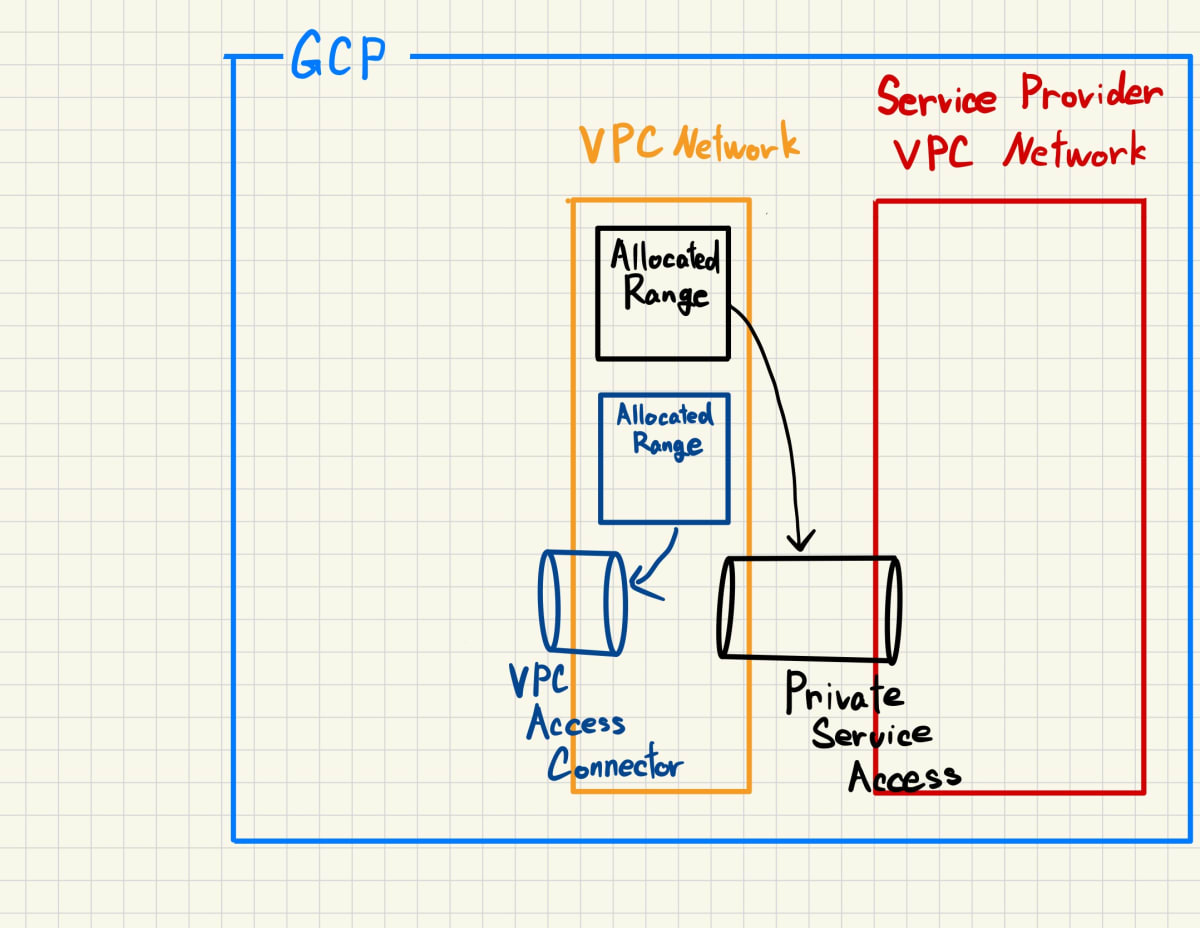 GCP
Service Provider
VPC Network
VPC Network
Allocated
Range
Allocated
Range
VPC
Access
Connector
Private
Service
Access